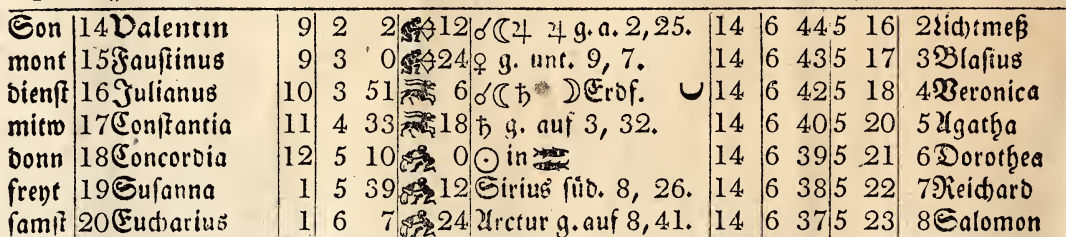 Son 14 Valentin 9 2 2 12 ☌☾♃ ♃ g. a. 2, 25. 14 6 44 5 16 2 Lichtmeß
mont 15 Fauſtinus 9 3 0 24 ♀ g. unt. 9, 7. 14 6 43 5 17 3 Blaſius
dienſt 16 Julianus 10 3 51 6 ☌☾♄ ☽ Erdf. 14 6 42 5 18 4 Veronica
mitw 17 Conſtantia 11 4 33 18 ♄ g. auf 3, 32. 14 6 40 5 20 5 Agatha
donn 18 Concordia 12 5 10 0 ☉ in ♓ 14 6 39 5 21 6 Dorothea
freyt 19 Suſanna 1 5 39 12 Sirius ſüd. 8, 26. 14 6 38 5 22 7 Reichard
ſamſt 20 Eucharius 1 6 7 24 Arctur g. auf 8, 41. 14 6 37 5 23 8 Salomon